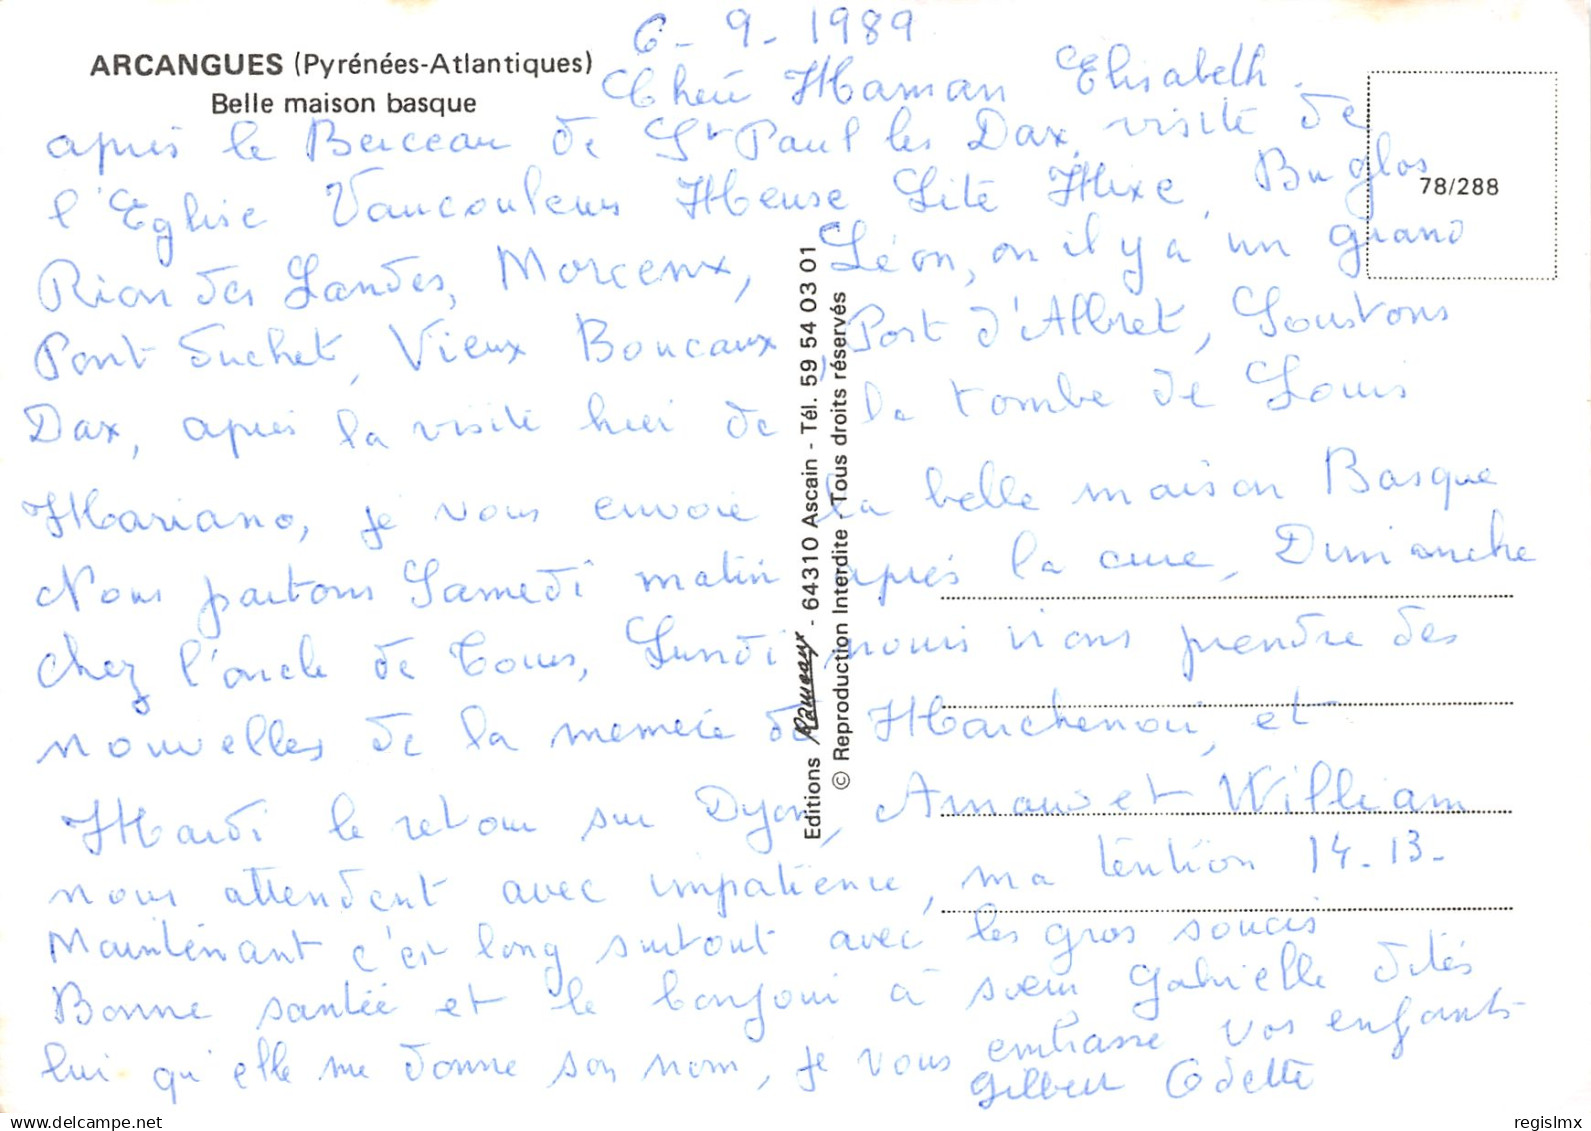 ARCANGUES (Pyrénées-Atlantiques)
Belle maison basque
6 - 9 - 1989
Maman Elisabeth.
après le Berceau de St Paul les Dax, visite de
l'Eglise Vaucouleurs Meuse Lité Mixe, Buglos
Rion des Landes, Morcenx, Léon, on il y a un grand
Pont Suchet, Vieux Boucaux, Port d'Albret, Soustons
Dax, après la visite hier de la tombe de Louis
Mariano, je vous envoie la belle maison Basque
Nous partons Samedi matin après la cure, Dimanche
chez l'oncle de Tours, Lundi nous irons prendre des
nouvelles de la memére de Marchenoir, et
Mardi le retour sur Dyon, Arnaud et William
nous attendent avec impatience, ma tention 14-13-
Maintenant c'est long surtout avec les gros soucis
Bonne santée et le bonjour à sœur Gabrielle dités
lui qu'elle me donne son nom, je vous embrasse vos enfants
Gilbert Odette
78/288
Editions Rameaux - 64310 Ascain - Tél. 59 54 03 01
© Reproduction Interdite - Tous droits réservés
www.delcampe.net
regislmx